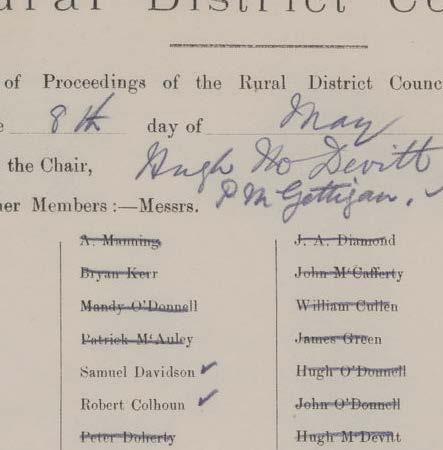 ural District Co
of Proceedings of the Rural District Counc
e 8th day of May
the Chair, Hugh Mc Devitt
her Members :—Messrs. P McGettigan,
A. Manning J. A. Diamond
Bryan Kerr John McCafferty
Mandy O'Donnell William Cullen
Patrick McAuley James Green
Samuel Davidson ✓ Hugh O'Donnell
Robert Colhoun ✓ John O'Donnell
Peter Doherty Hugh McDevitt